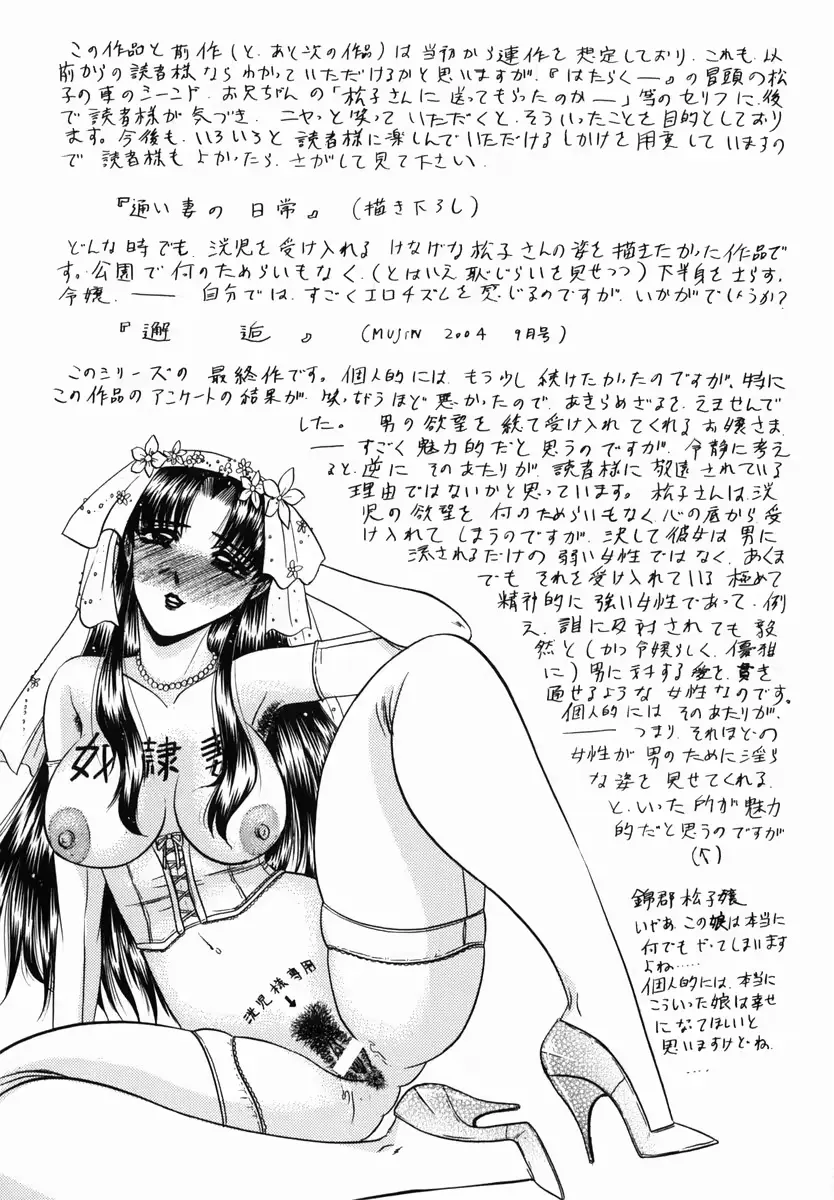 この作品と前作(と、あと次の作品)は当初から連作を想定しており、これも、以
前からの読者様ならわかっていただけるかと思いますが、『はたらく―』の冒頭の松
子の車のシーンド、お兄ちゃんの「松子さんに送ってもらったのか―」等のセリフに、後
で読者様が気づき、ニヤッと笑っていただくと、そういったことを目的としており
ます。今後も、いろいろと読者様に楽しんでいただけるしかけを用意していますの
で読者様もよかったら、さがして見て下さい。
『通い妻の日常』(描き下ろし)
どんな時でも、洸児を受け入れるけなげな松子さんの姿を描きたかった作品で
す。公園で何のためらいもなく、(とはいえ恥じらいを見せつつ)下半身を
令嬢、―― 自分では、すごくエロチズムを感じるのですが、いかがでしょうか?
『邂逅』(MUJIN 2004 9月号)
このシリーズの最終作です。個人的には、もう少し続けたかったのですが、特に
この作品のアンケートの結果が、笑っちゃうほど悪かったので、あきらめざるを、えませんで
した。男の欲望を統て受け入れてくれるお嬢さま、
―― すごく魅力的だと思うのですが、令静に考え
ると、逆にそのあたりが、読者様に放遠されている
理由ではないかと思っています。松子さんは、洸
児の欲望を何のためらいもなく、心の底から受
け入れてしまうのですが、決して彼女は男に
流されるだけの弱い女性ではなく、あくま
でもそれを受け入れている極めて
精神的に強い女性であって、例
え、誰に反対されても毅
然と(しかも令嬢らしく、優雅
に)男に対する愛を、貫き
通せるような女性なのです。
個人的にはそのあたりが、
―― つまり、それほどの
女性が男のために淫ら
な姿を見せてくれる、
と、いった所が魅力
的だと思うのですが
奴隷妻
洸児様専用
↓
錦郡松子嬢
いやあ、この娘は本当に
何でもやってしまいます
よね……
個人的には、本当に
こういった娘は幸せ
になってほしいと
思いますけどね
‥‥